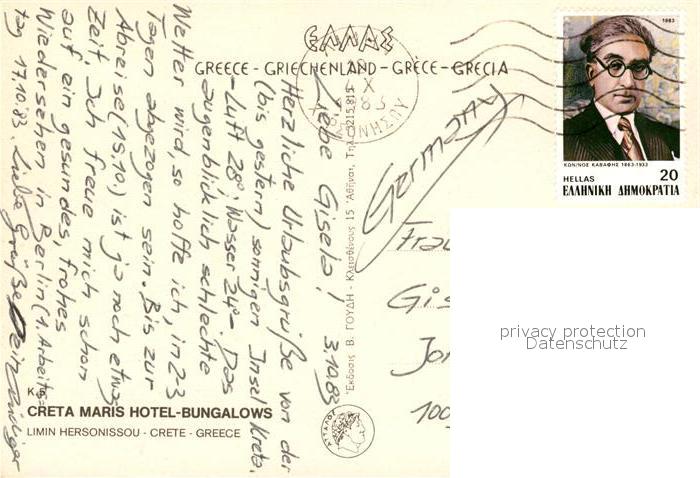 ΕΛΛΑΣ
GREECE - GRIECHENLAND - GRÈCE - GRECIA
Liebe Gisela! 3.10.83
Herzliche Urlaubsgrüße von der
(bis gestern) sonnigen Insel Kreta.
- Luft 28°, Wasser 24° - Das
augenblicklich schlechte
Wetter wird, so hoffe ich, in 2-3
Tagen abgezogen sein. Bis zur
Abreise (15.10.) ist ja noch etwas
Zeit. Ich freue mich schon
auf ein gesundes, frohes
Wiedersehen in Berlin (1. Arbeits-
tag 17.10.83. Liebe Grüße Dein
CRETA MARIS HOTEL-BUNGALOWS
LIMIN HERSONISSOU - CRETE - GREECE
Ἔκδοσις Β. ΓΟΥΔΗ - Κλεισθένους 15 Ἀθῆναι, Τηλ. 3215.815
ΑΤΤΑΛΟΣ
X
83
Germany
Frau
Gis
Jo
100
1983
ΚΩΝ/ΝΟΣ ΚΑΒΑΦΗΣ 1863-1933
HELLAS 20
ΕΛΛΗΝΙΚΗ ΔΗΜΟΚΡΑΤΙΑ
privacy protection
Datenschutz